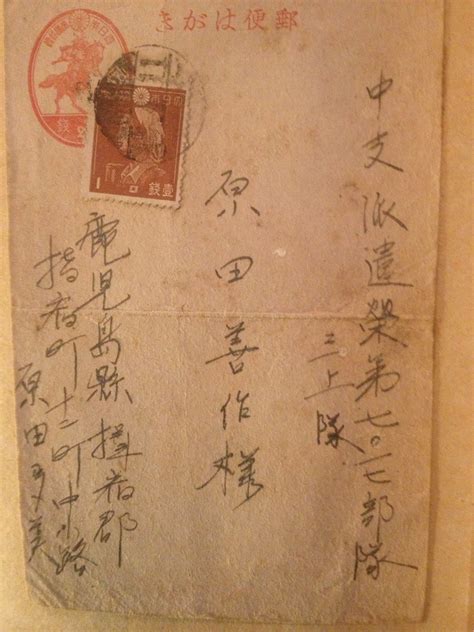 郵便はがき
中支派遣榮第七〇一七部隊
三上隊
原田善作様
鹿児島縣揖宿郡
指宿町十二町中小路
原田 美
壹錢
1